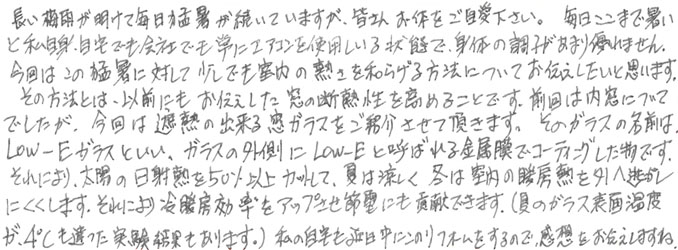 長い梅雨が明けて毎日猛暑が続いていますが、皆さんお体をご自愛下さい。毎日ここまで暑い
と私自身、自宅でも会社でも常にエアコンを使用している状態で、身体の調子があまり優れません。
今回はこの猛暑に対して少しでも室内の熱さを和らげる方法についてお伝えしたいと思います。
その方法とは、以前にもお伝えした窓の断熱性を高めることです。前回は内窓について
でしたが、今回は遮熱の出来る窓ガラスをご紹介させて頂きます。そのガラスの名前は、
LOW-Eガラスといい、ガラスの外側にLOW-Eと呼ばれる金属膜でコーティングした物です。
それにより、太陽の日射熱を50%以上カットして、夏は涼しく冬は室内の暖房熱を外へ逃がし
にくくします。それにより冷暖房効率をアップさせ節電にも貢献できます。(夏のガラス表面温度
が、4℃も違った実験結果もあります。)私の自宅も近日中にこのリフォームをするので、感想をお伝えしますね。